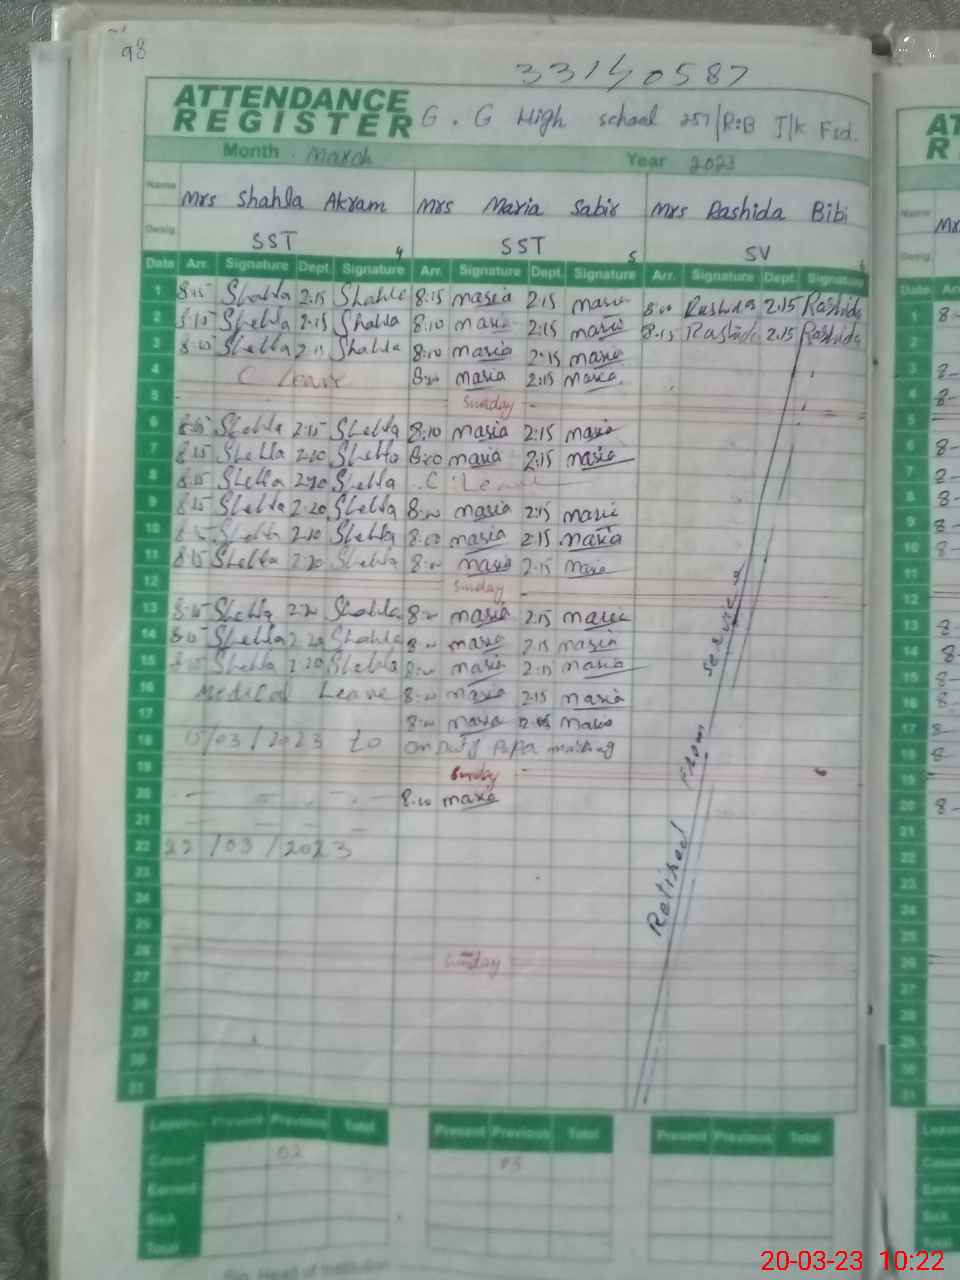 98
33140587
ATTENDANCE
REGISTER G.G High school 257/R.B J/K Fsd.
Month March Year 2023
Name Mrs Shahla Akram Mrs Maria Sabir Mrs Rashida Bibi
Desig. SST 4 SST 5 SV
Date Arr. Signature Dept. Signature Arr. Signature Dept. Signature Arr. Signature Dept. Signature
1 8:15 Shahla 2:15 Shahla 8:15 maria 2:15 maria 8:00 Rashida 2:15 Rashida
2 8:10 Shehla 2:15 Shahla 8:10 maria 2:15 maria 8:15 Rashida 2:15 Rashida
3 Shehla Shahla 8:10 maria 2:15 maria
4 C Leave maria 2:15 maria
5 Sunday
6 Shehla 2:15 Shehla 8:10 maria 2:15 maria
7 8:15 Shehla 2:20 Shehla 8:00 maria 2:15 maria
8 8:15 Shehla 2:20 Shehla C. Leave
9 8:15 Shehla 2:20 Shehla maria 2:15 maria
10 Shehla 2:20 Shehla 8:00 maria 2:15 maria
11 8:15 Shehla 2:20 Shehla maria 2:15 maria
12 Sunday
13 Shehla 2:20 Shahla maria 2:15 maria
14 Shehla 2:20 Shahla maria 2:15 maria
15 Shehla 2:20 Shehla maria 2:15 maria
16 Medical Leave maria 2:15 maria
17 maria maria
18 15/03/2023 to on duty paper marking
19 Sunday
20 8:10 maria
21
22 22/03/2023
23
24
25
26 Sunday
27
28
29
30
31
Retired From service
Leaves Present Previous Total Present Previous Total Present Previous Total
Casual 02 05
Earned
Sick
Total
Head of Institution
20-03-23 10:22